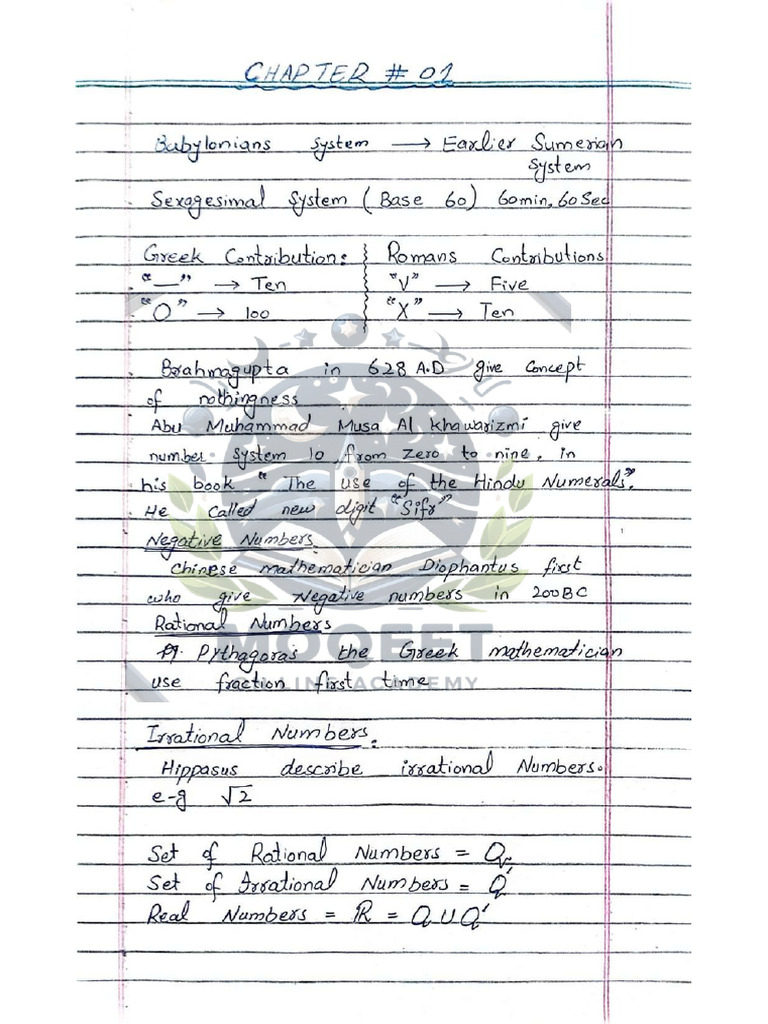 CHAPTER # 01
Babylonians system → Earlier Sumerian
system
Sexagesimal System (Base 60) 60min, 60Sec
Greek Contribution:
"—" → Ten
"O" → 100
Romans Contributions
"V" → Five
"X" → Ten
Brahmagupta in 628 A.D give concept
of nothingness
Abu Muhammad Musa Al Khawarizmi give
number system 10, from Zero to nine, in
his book "The use of the Hindu Numerals".
He Called new digit "Sifr"
Negative Numbers:
Chinese mathematician Diophantus first
who give Negative numbers in 200BC
Rational Numbers
Pythagoras the Greek mathematician
use fraction first time
MOQEET
ONLINE ACADEMY
Irrational Numbers:
Hippasus describe irrational Numbers.
e-g √2
Set of Rational Numbers = Q
Set of Irrational Numbers = Q'
Real Numbers = ℝ = Q ∪ Q'